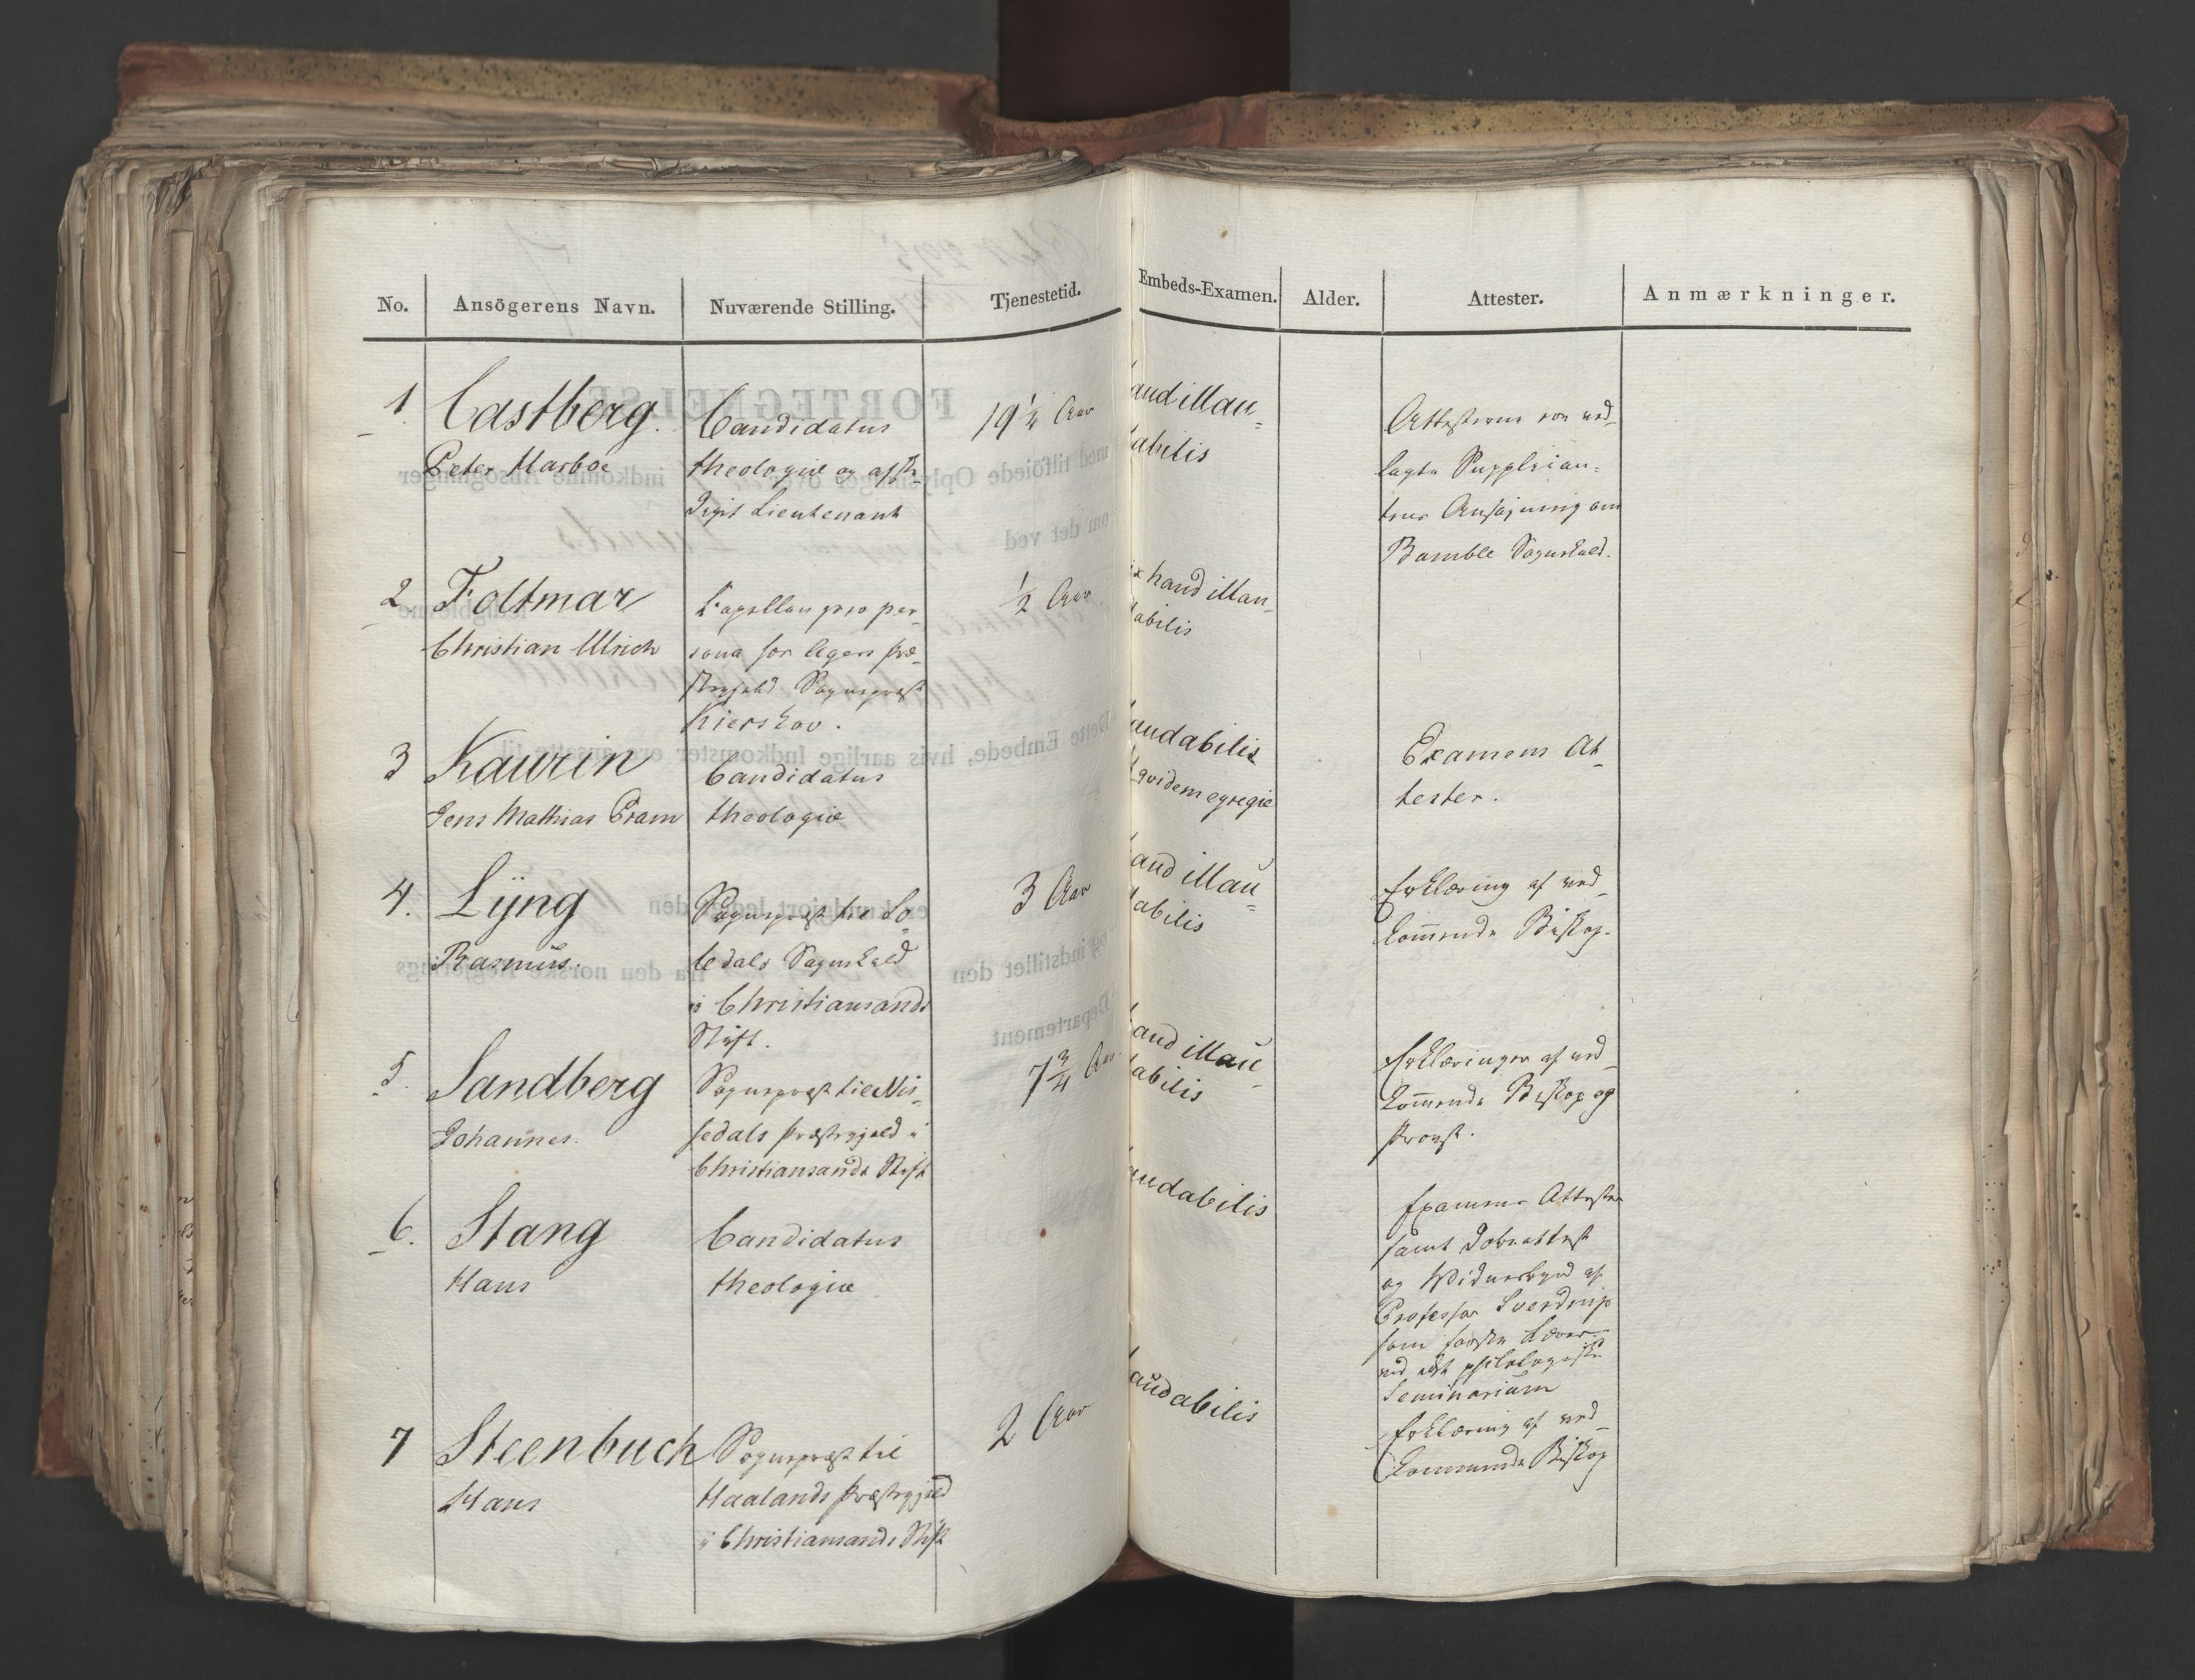 No. Ansögerens Navn. Nuværende Stilling. Tjenestetid. Embeds-Examen. Alder. Attester. Anmærkninger.
1. Castberg.
Peter Harboe
Candidatus
theologiæ og
Lieutenant
19 1/4 Aar
haud illau=
dabilis
Attesterne ere ved
lagte Supplican=
tens Ansøgning om
Bamble Sognekald.
2 Foltmar
Christian Ulrich
Capellan pro per
sona for Præ
stegjeld Sognepræst
Kierskov.
1/2 Aar
haud illau
dabilis
3 Kaurin
Jens Mathias Pram
Candidatus
theologiæ
laudabilis
& qvidem egregie
Examens At
tester.
4. Lÿng
Rasmus.
Sognepræst til So
ledals Sognekald
i Christiansands
Stift.
3 Aar
haud illau=
dabilis
Erklæring af ved
kommende Biskop.
5. Sandberg
Johannes.
Sognepræst til Nis
sedals Præstegjeld i
Christiansands Stift
7 3/4 Aar
haud illau
dabilis
Erklæringer af ved
kommende Biskop og
Provst.
6. Stang
Hans
Candidatus
theologiæ
laudabilis
Examens Attester
samt Døbeattest
og Vidnesbyrd af
Professor Sverdrup
som første Lærer
ved det philologiske
Seminarium
7 Steenbuch
Hans
Sognepræst til
Haalands Præstegjeld
i Christiansands Stift
2 Aar
laudabilis
Erklæring af ved
kommende Biskop